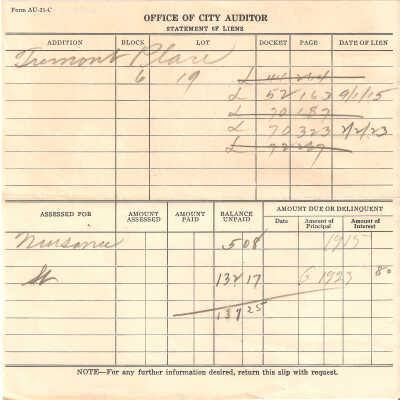 Form AU-21-C
OFFICE OF CITY AUDITOR
STATEMENT OF LIENS
ADDITION BLOCK LOT DOCKET PAGE DATE OF LIEN
Tremont Place
6 19 L
L 52 163 9/1/15
L 70 187
L 70 323 2/2/23
L
ASSESSED FOR AMOUNT ASSESSED AMOUNT PAID BALANCE UNPAID AMOUNT DUE OR DELINQUENT
Date Amount of Principal Amount of Interest
Nuisance 5 08 1915
St 132 17 6 1923 80
137 25
NOTE—For any further information desired, return this slip with request.